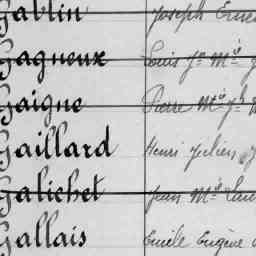 Gablin Joseph
Gagneux Louis Jn Mie
Gaigne Pierre Mie Jh
Gaillard Henri Julien
Galichet Jean Mie
Gallais Emile Eugène